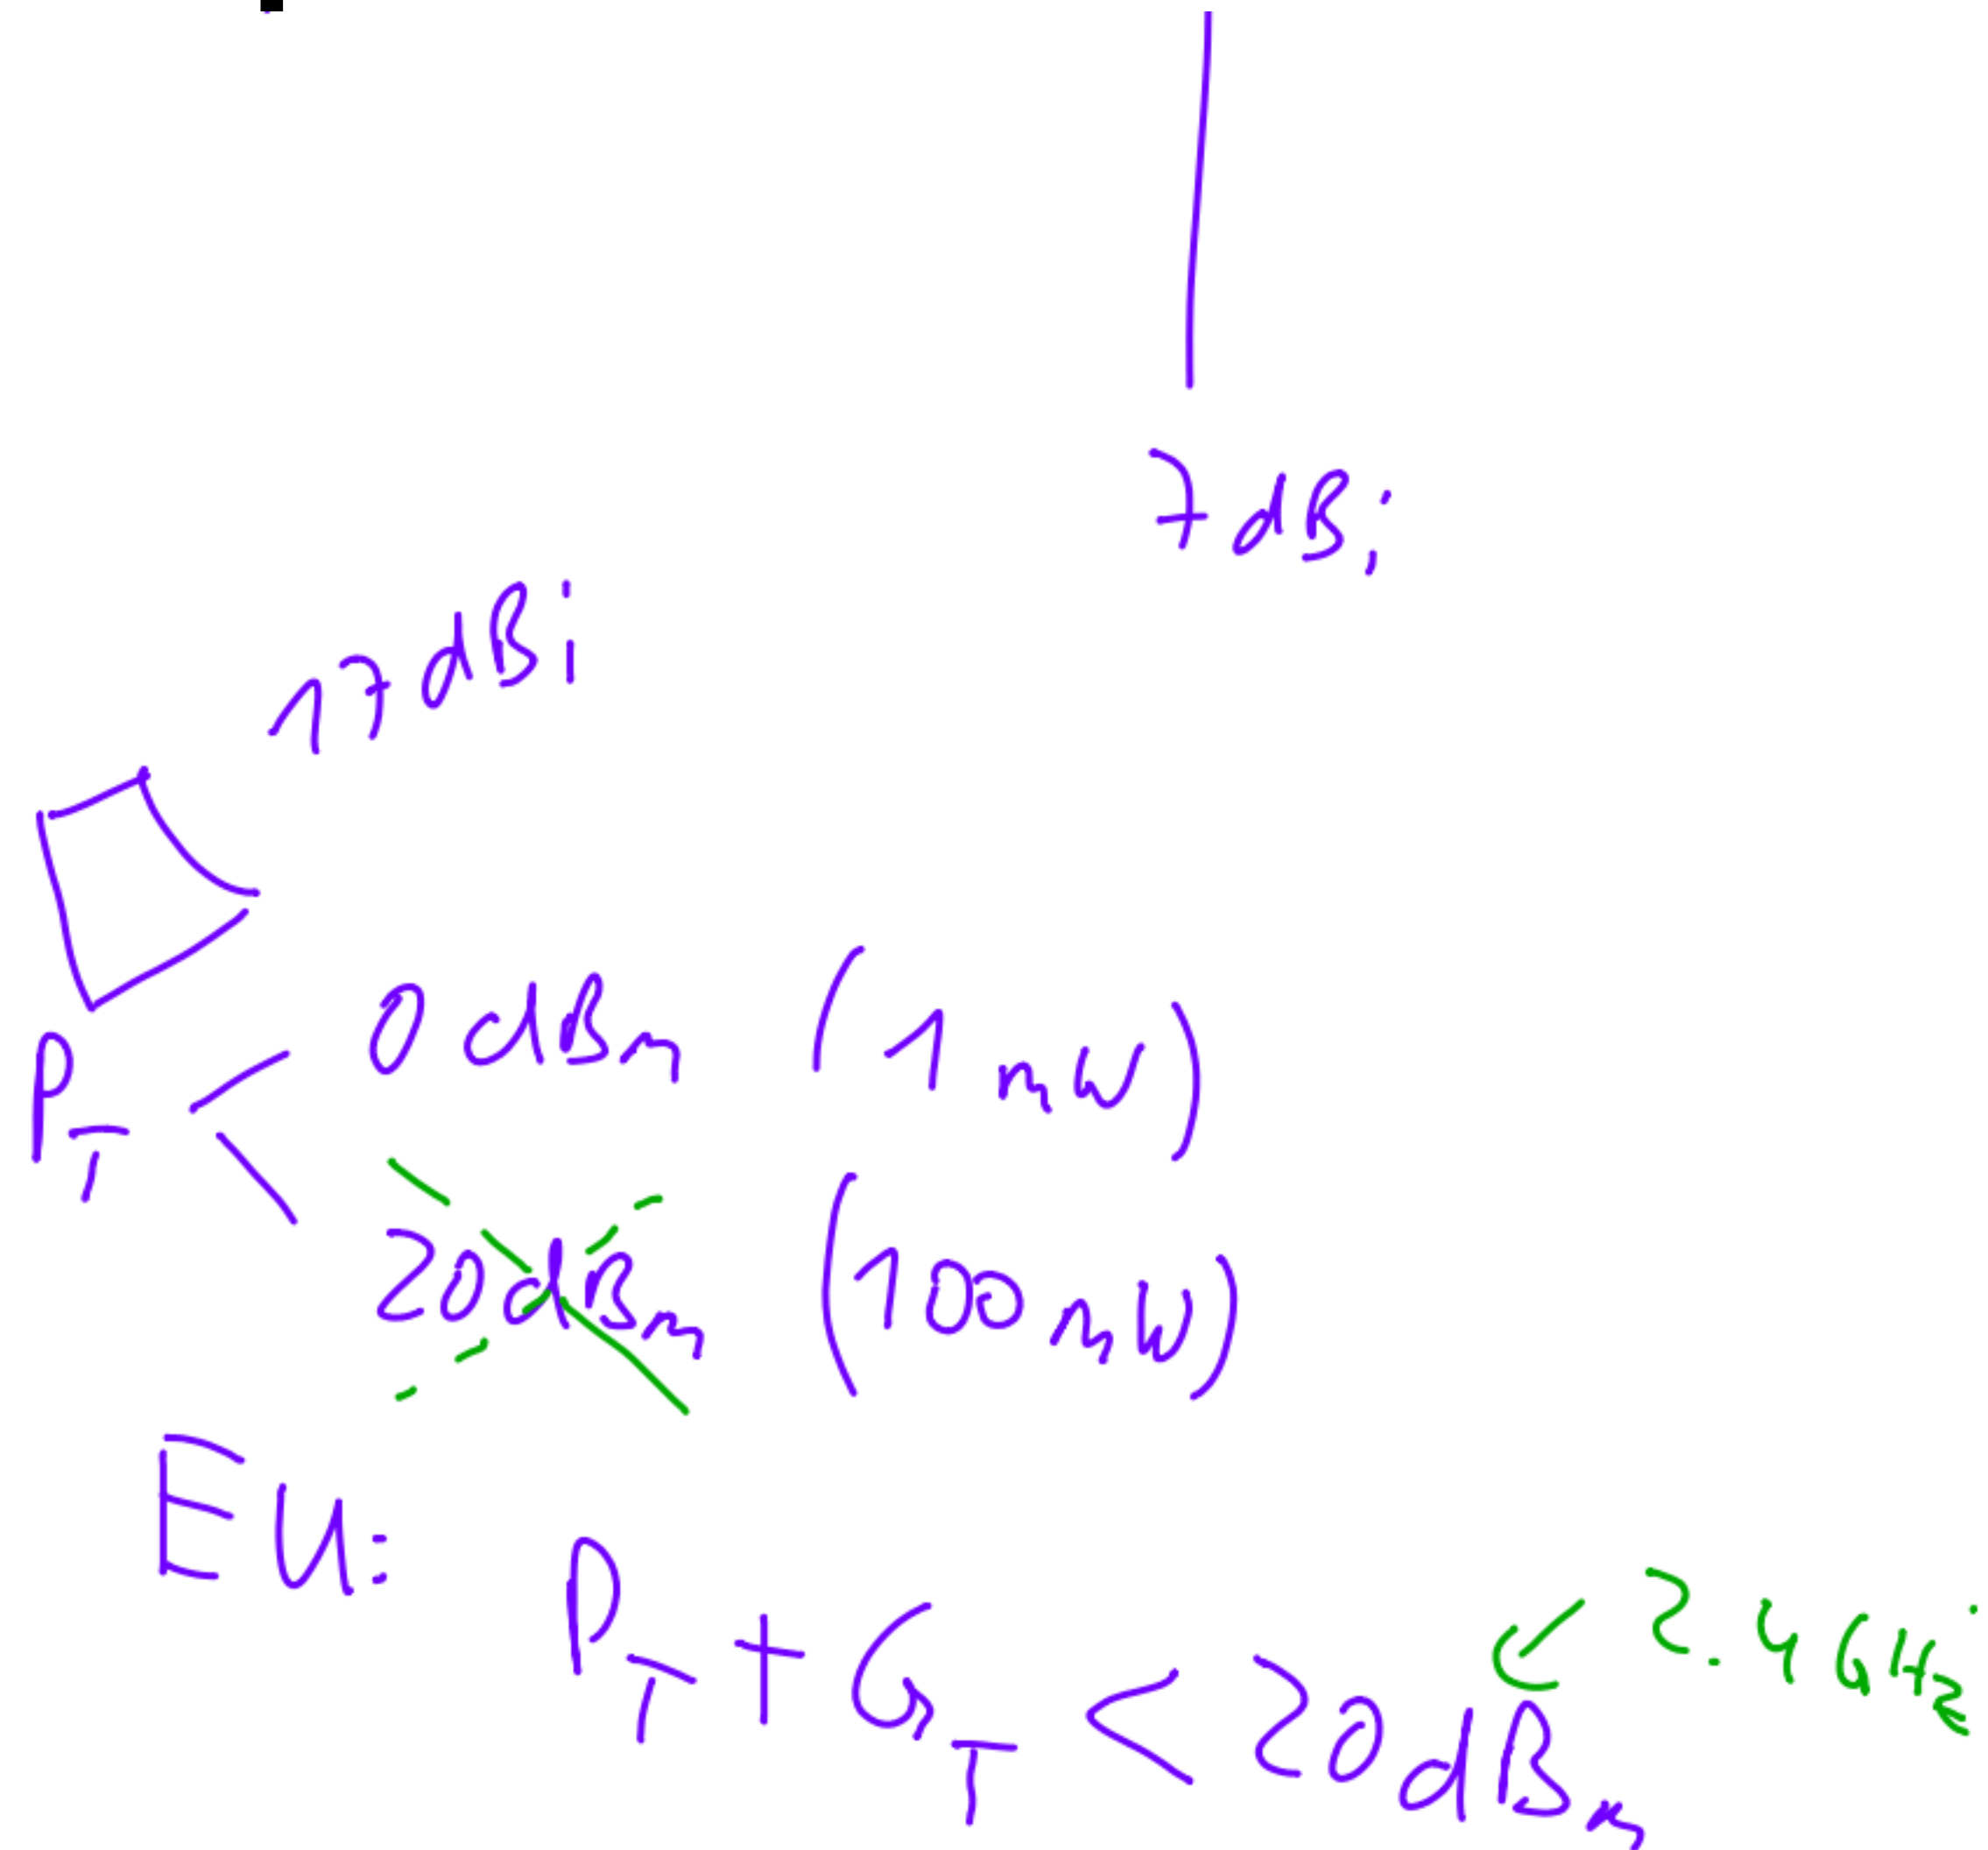 7 dBi
17 dBi
0 dBm (1mW)
PT
20dBm (100mW)
EU:
PT + GT < 20dBm
2.4 GHz